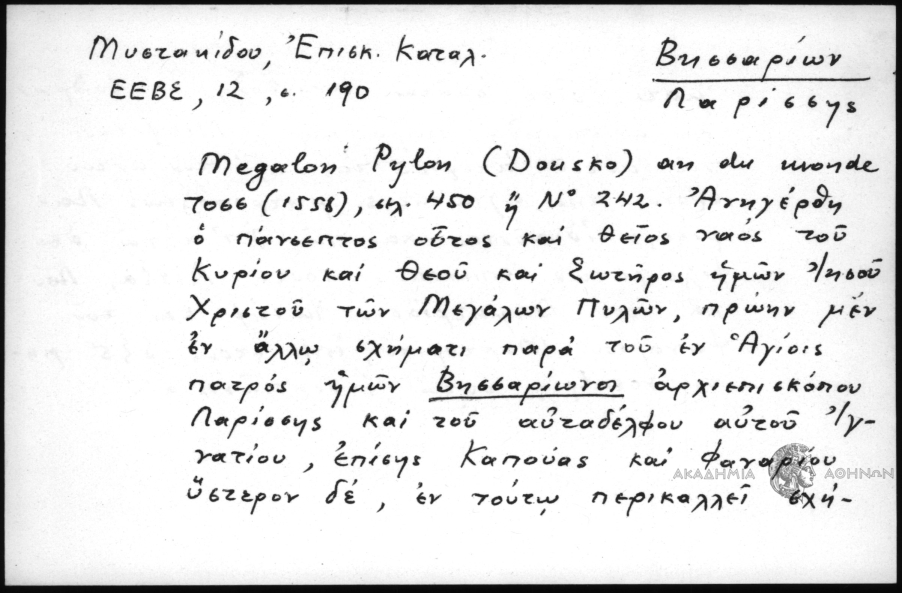 Μυστακίδου, Ἐπισκ. Καταλ.
ΕΕΒΣ, 12, σ. 190
Βησσαρίων
Λαρίσσης
Megalon Pylon (Dousko) an du monde
7066 (1558), σελ. 450 ἤ Νο 242. Ἀνηγέρθη
ὁ πάνσεπτος οὗτος καὶ θεῖος ναός τοῦ
Κυρίου καὶ Θεοῦ καὶ Σωτῆρος ἡμῶν Ἰησοῦ
Χριστοῦ τῶν Μεγάλων Πυλῶν, πρώην μέν
ἐν ἄλλῳ σχήματι παρά τοῦ ἐν Ἁγίοις
πατρός ἡμῶν Βησσαρίωνος ἀρχιεπισκόπου
Λαρίσσης καὶ τοῦ αὐταδέλφου αὐτοῦ Ἰγ-
νατίου, ἐπίσης Καπούας καὶ Φαναρίου
ὕστερον δέ, ἐν τούτῳ περικαλλεῖ σχή-
ΑΚΑΔΗΜΙΑ ΑΘΗΝΩΝ